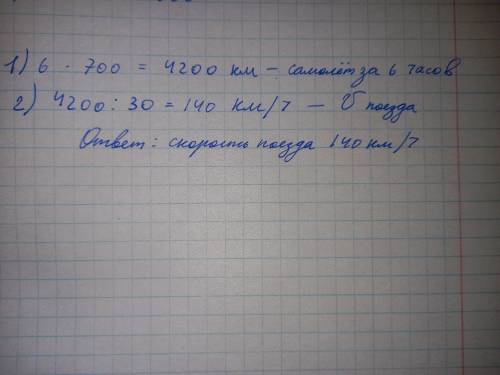 1) 6 · 700 = 4200 км – самолёт за 6 часов
2) 4200 : 30 = 140 км/ч – V поезда
Ответ: скорость поезда 140 км/ч